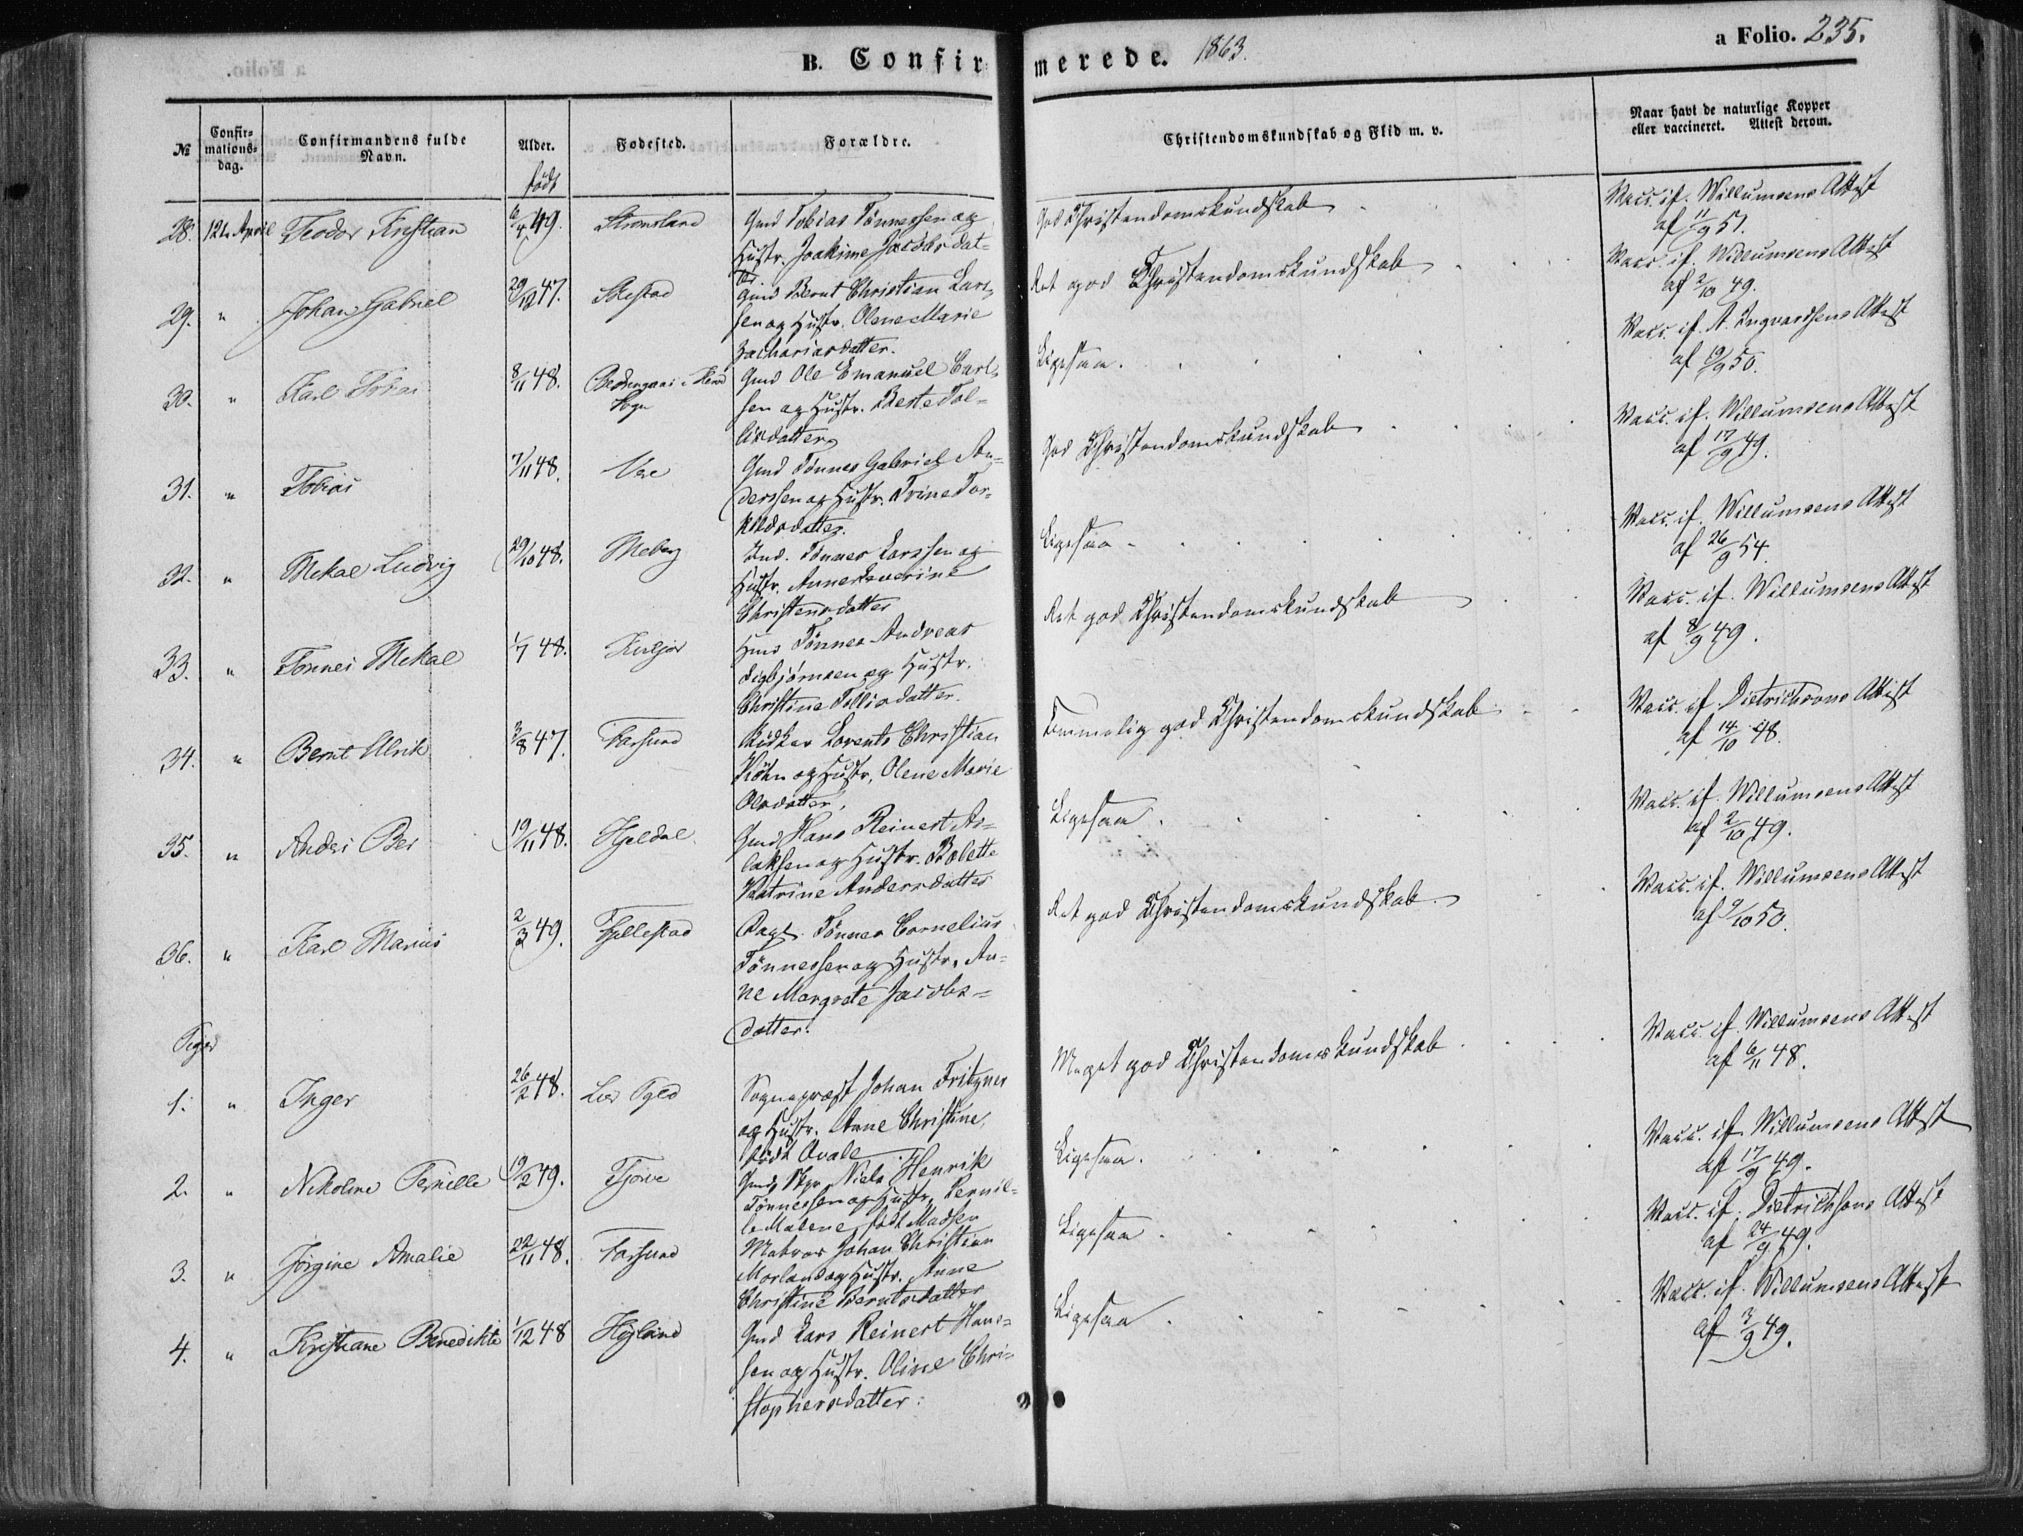 a Folio. 235.
B. Confirmerede. 1863.
№ Confirmations-dag. Confirmandens fulde Navn. Alder. født Fødested. Forældre. Christendomskundskab og Flid m. v. Naar havt de naturlige Kopper eller vaccineret. Attest derom.
28. 12te April Teodor Kristian 6/4 49. Strømsland Gmd Tobias Tønnessen og God Christendomskundskab Vacc. if. Willumsens Attest
Hustr. Joakime Jacobsdat- af 11/9 51.
ter
29. " Johan Gabriel 29/12 47. Gmd Bernt Christian Lars- Ret god Christendomskundskab Vacc. if. Willumsens Attest
sen og Hustr. Olene Marie af 2/10 49.
Zachariasdatter.
30. " Karl Tobias 8/11 48. Gmd Ole Emanuel Carl- Ligesaa. Vacc. if. A. Ingvardsens Attest
Sogn sen og Hustr. Berte Tol-
lisdatter
31. " Tobias 7/11 48. Vere Gmd Tønnes Gabriel An- God Christendomskundskab Vacc. if. Willumsens Attest
derssen og Hustr. Trine Tor- af 17/9 49.
kildsdatter.
32. " Mikal Ludvig 29/10 48. Meberg Ind. Tønnes Larssen og Ligesaa Vacc. if. Willumsens Attest
Hustr. Anne Severine af 26/9 54.
Christensdatter
33. " Tønnes Mikal 1/7 48. Tønnes Andreas Ret god Christendomskundskab Vacc. if. Willumsens Attest
Sigbjørnsen og Hustr. af 8/9 49.
Christine Tollisdatter.
34. " Bernt Ulrik 3/8 47. Farsund Lorents Christian Temmelig god Christendomskundskab Vacc. if. Dietrichsons Attest
og Hustr. Olene Marie af 14/10 48.
Olsdatter.
35. " Anders Ber 19/11 48. Hjeldal Gmd Hans Reinert As- Ligesaa. Vacc. if. Willumsens Attest
laksen og Hustr. Bolette af 2/10 49.
Katrine Andersdatter
36. " Karl Marius 2/3 49. Fjellestad Tønnes Cornelius Ret god Christendomskundskab Vacc. if. Willumsens Attest
Tønnessen og Hustr. An- af 9/10 50.
ne Margrete Jacobs-
datter.
Piger
1. " Inger 26/2 48. Sognepræst Johan Fritzner Meget god Christendomskundskab Vacc. if. Willumsens Attest
og Hustr. Anne Christine, af 6/11 48.
født Qvale
2. " Nikoline Pernille 19/2 49. Tjørve Gmd, Skpr Niels Henrik Ligesaa. Vacc. if. Willumsens Attest
Tønnessen og Hustr. Pernil- af 17/9 49.
le Malene, født Madsen
3. " Jørgine Amalie 22/11 48. Farsund Matros Johan Christian Ligesaa Vacc. if. Dietrichsons Attest
og Hustr. Anne af 24/9 49.
Christine Berntsdatter
4. " Kristiane Benedikte 1/12 48 Højland Gmd Lars Reinert Hans- Ligesaa Vacc. if. Willumsens Attest
sen og Hustr. Oline Chri- af 3/9 49.
stophersdatter.